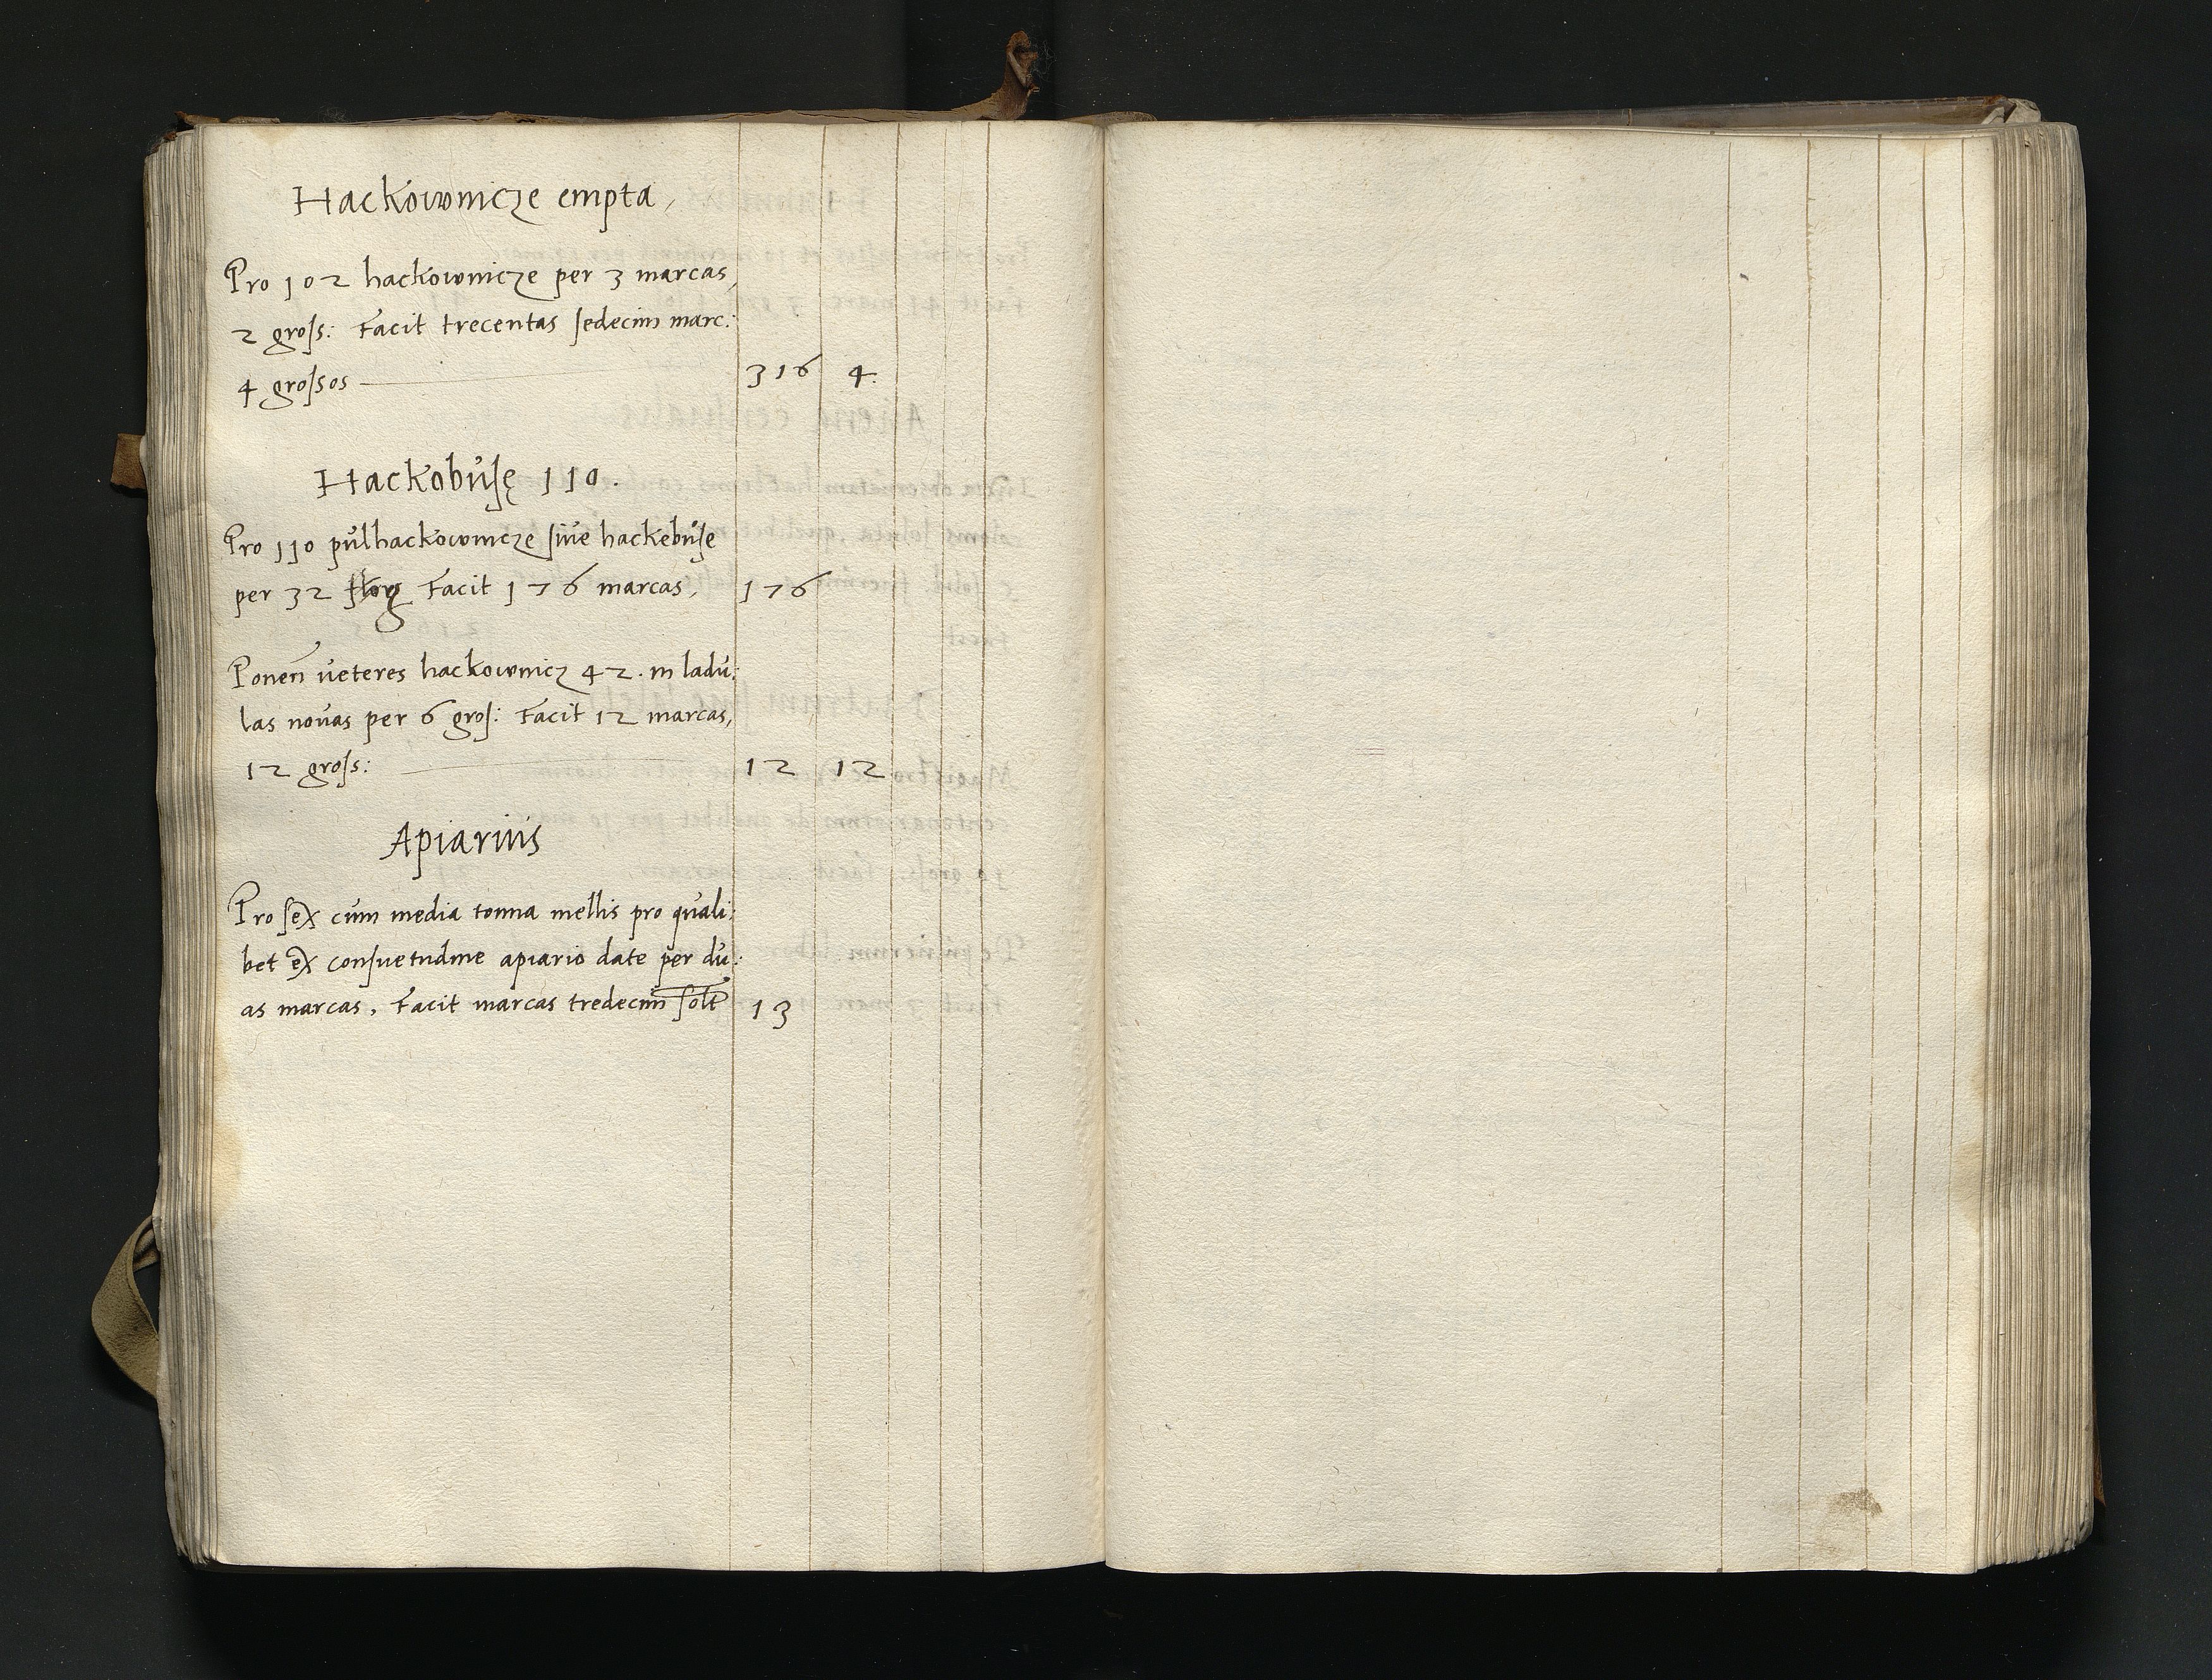 Hackownicze empta,
Pro 102 hackownicze per 3 marcas,
2 groſs: Facit trecentas ſedecim marc:
4 groſsos 316 4.
Hackobuſę 110.
Pro 110 pulhackownicze ſiue hackebuſe
per 32 Facit 176 marcas, 176
Ponen̄ ueteres hackownicz 42. in ladu:
las nouas per 6 groſ: Facit 12 marcas,
12 groſs: 12 12
Apiarius
Pro ſex cum media tonna mellis pro quali:
bet ex conſuetudine apiario date per du:
as marcas. Facit marcas tredecim ſolt 13